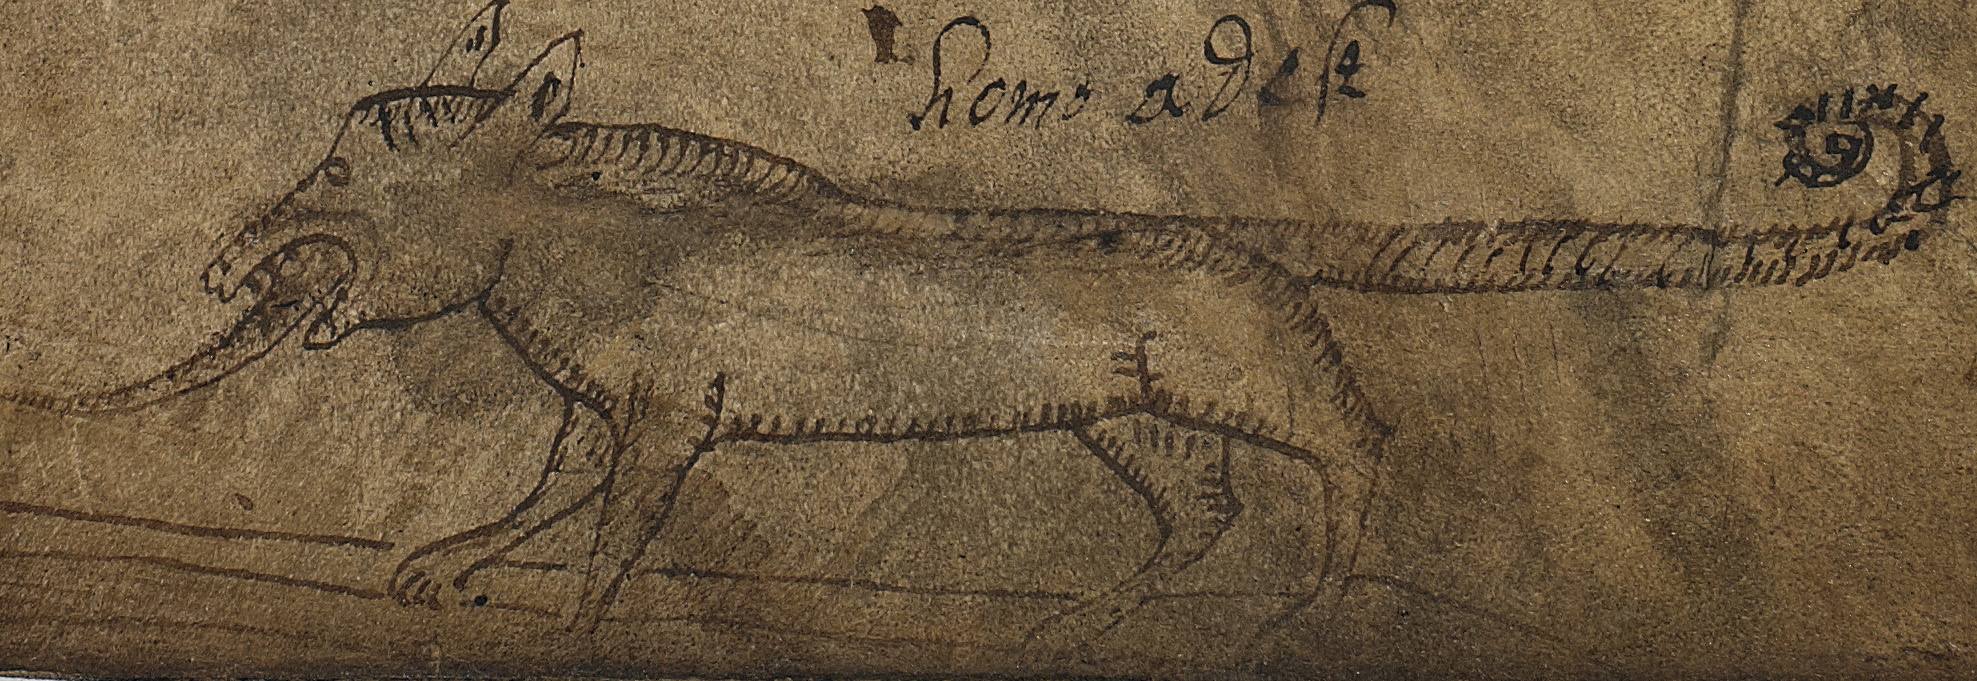 homo adest